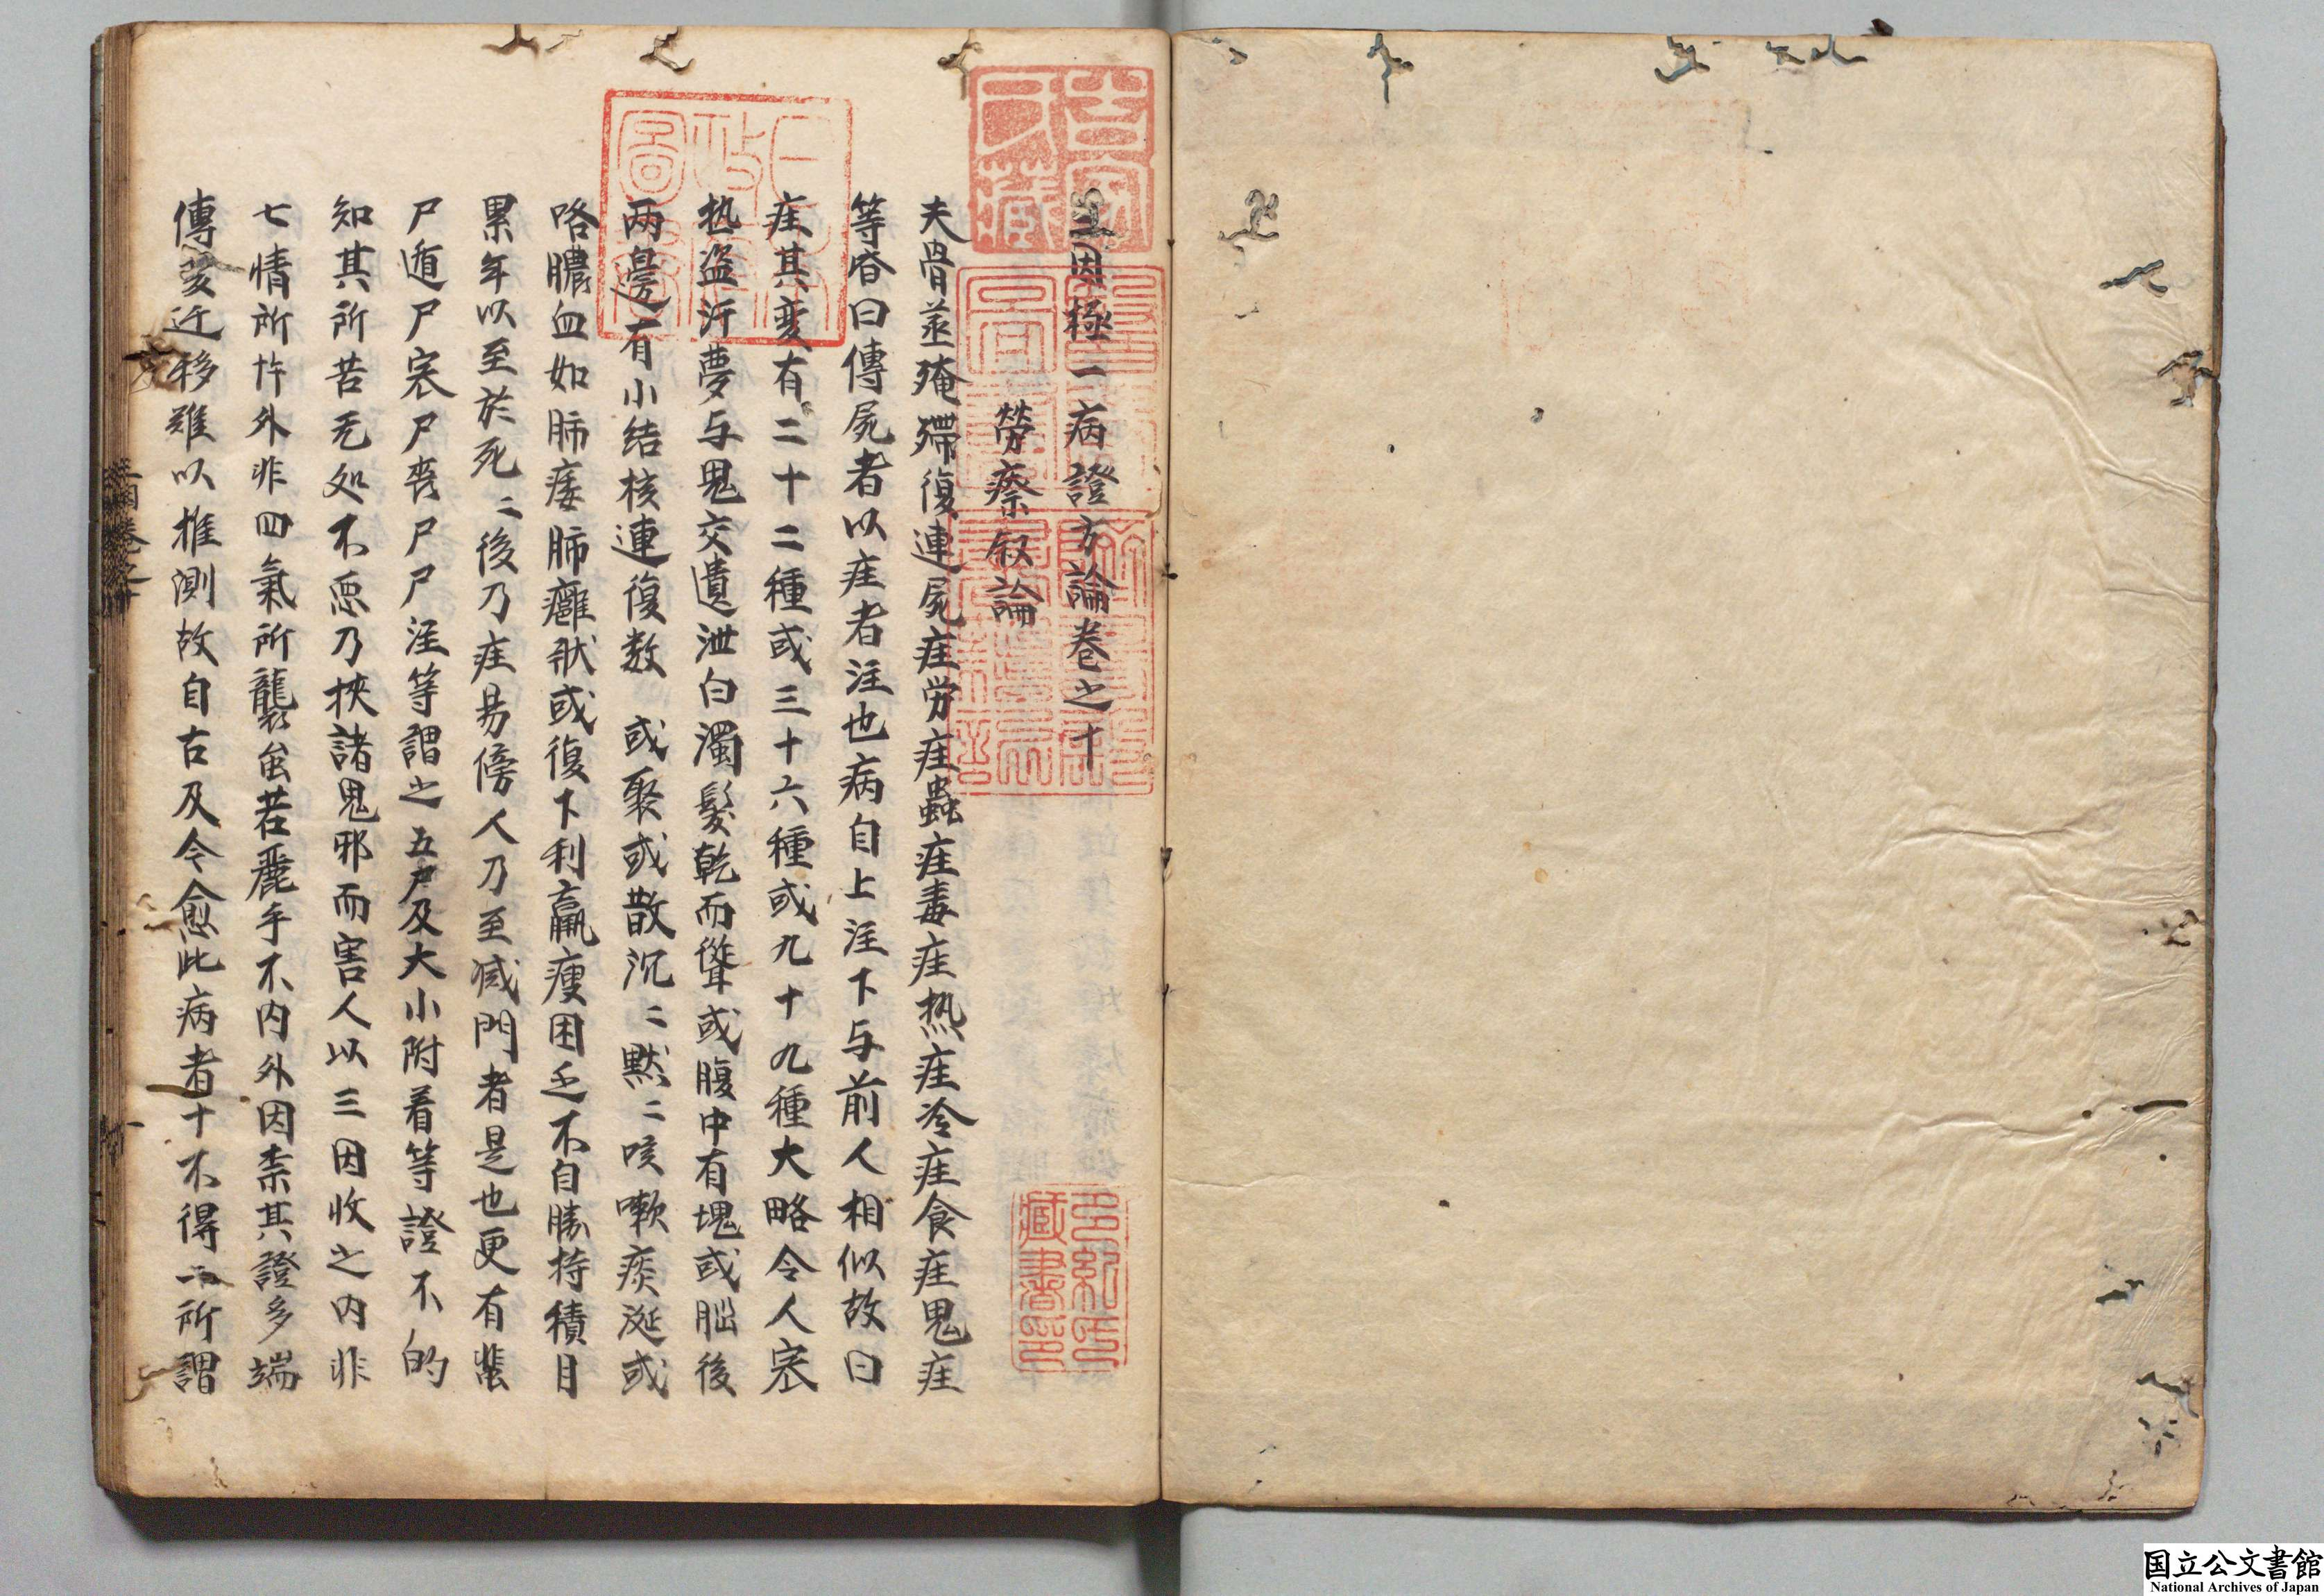 三因極一病證方論卷之十
勞瘵叙論
夫骨蒸殗殢復連屍疰労疰蟲疰毒疰热疰冷疰食疰鬼疰
等昏曰傳屍者以疰者注也病自上注下与前人相似故曰
疰其变有二十二種或三十六種或九十九種大略令人寒
热盗汗夢与鬼交遺泄白濁髮乾而聳或腹中有塊或脳後
两邊有小结核連復数 或聚或散沉〻默〻咳嗽痰涎或
咯膿血如肺痿肺癰状或復下利羸瘦困乏不自勝持積月
累年以至於死〻後乃疰易傍人乃至滅門者是也更有蜚
尸遁尸寒尸喪尸尸注等謂之五尸及大小附着等證不的
知其所苦无处不悪乃挾諸鬼邪而害人以三因收之内非
七情所忤外非四氣所襲虽若麗乎不内外因柰其證多端
傳变迁移難以推測故自古及今愈此病者十不得一所謂
国立公文書館
National Archives of Japan